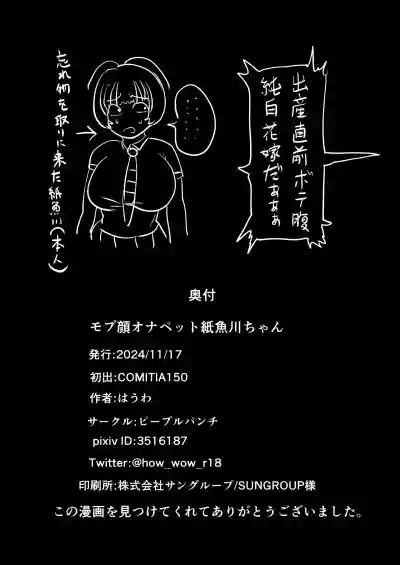 出産直前ボテ腹
純白花嫁だぁぁぁ
……
……
忘れ物を取りに来た紙魚川(本人)
奥付
モブ顔オナペット紙魚川ちゃん
発行:2024/11/17
初出:COMITIA150
作者:はうわ
サークル:ピープルパンチ
pixiv ID:3516187
Twitter:@how_wow_r18
印刷所:株式会社サングループ/SUNGROUP様
この漫画を見つけてくれてありがとうございました。